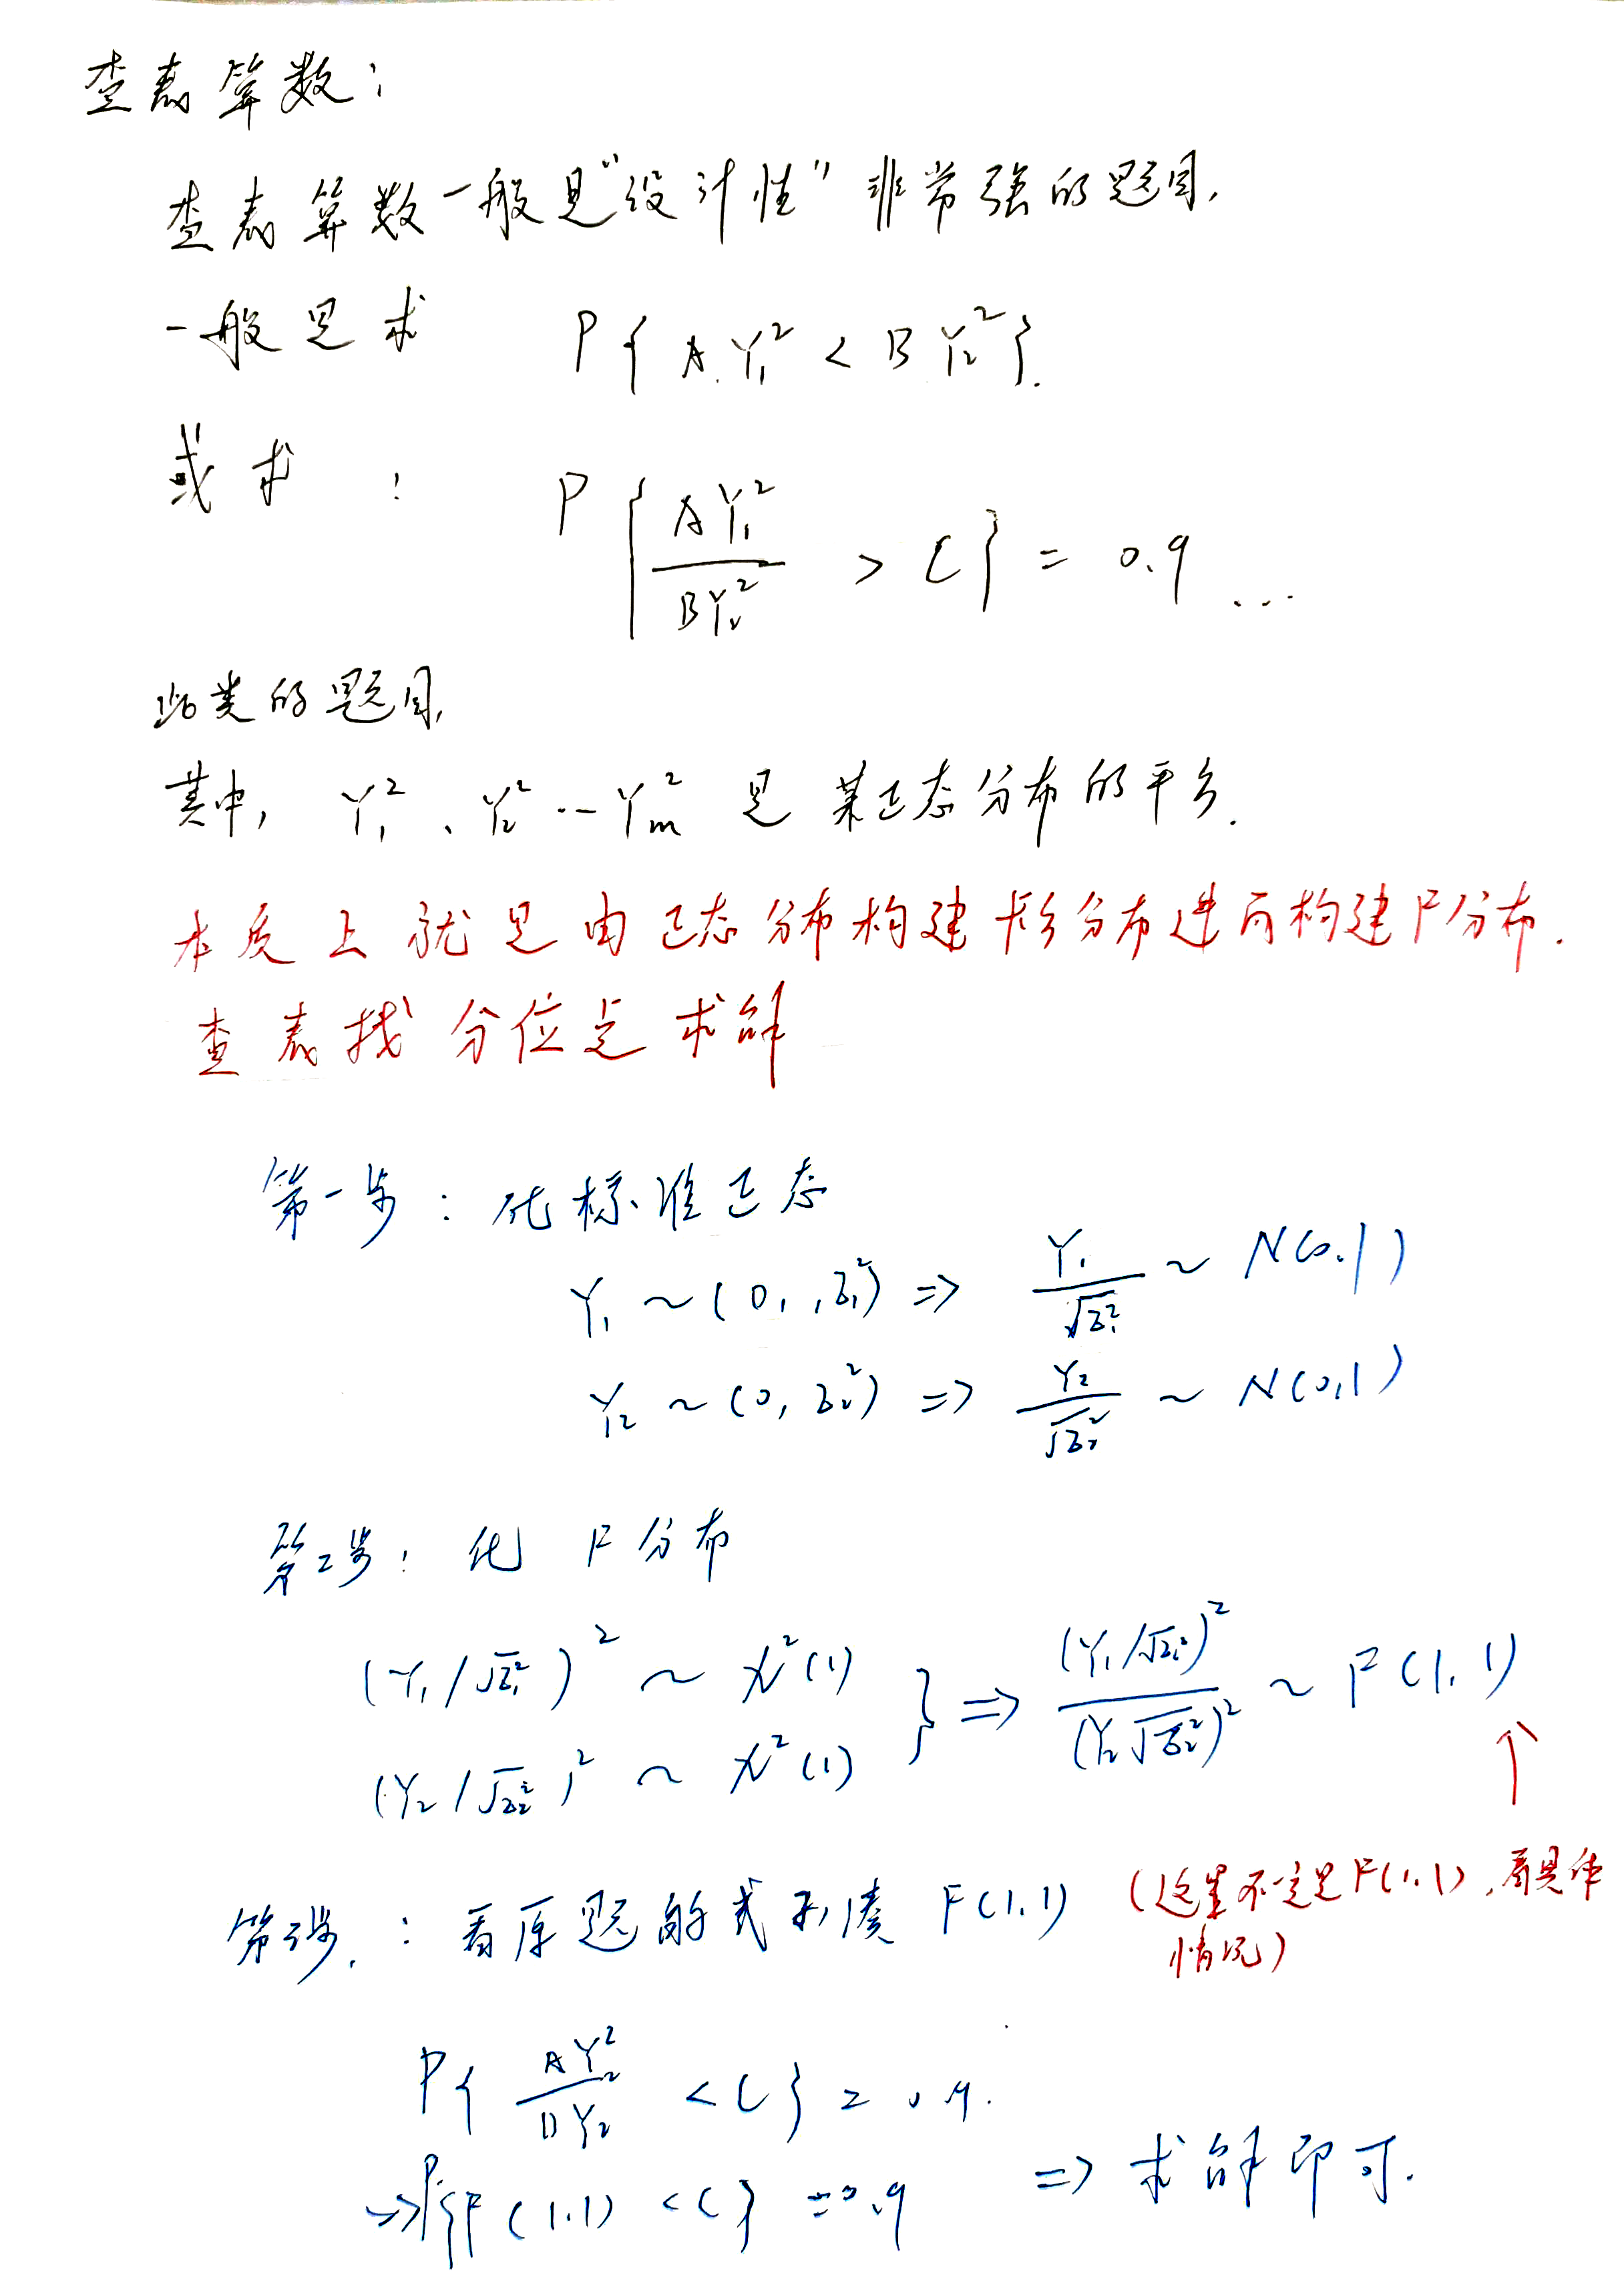 查表算数：
查表算数一般是“设计性”非常强的题目，
一般是求 P{AY₁² < BY₂²}.
或求： P{AY₁²/BY₂² > C} = 0.9 ...
此类的题目，
其中，Y₁²、Y₂² ... Yₘ² 是某正态分布的平方.
本质上就是由正态分布构建卡方分布进而构建F分布.
查表找分位点求解
第一步：化标准正态
Y₁ ~ (0, σ₁²) => Y₁/√σ₁² ~ N(0,1)
Y₂ ~ (0, σ₂²) => Y₂/√σ₂² ~ N(0,1)
第二步：化F分布
(Y₁/√σ₁²)² ~ χ²(1)
(Y₂/√σ₂²)² ~ χ²(1)
} => (Y₁/√σ₁²)²/(Y₂√σ₂²)² ~ F(1,1)
↑
第三步：看原题的式子凑 F(1,1) （这里不一定是F(1,1)，看具体
情况）
P{AY₂²/BY₂ < C} = 0.9.
→ P{F(1,1) < C} = 0.9 => 求解即可.